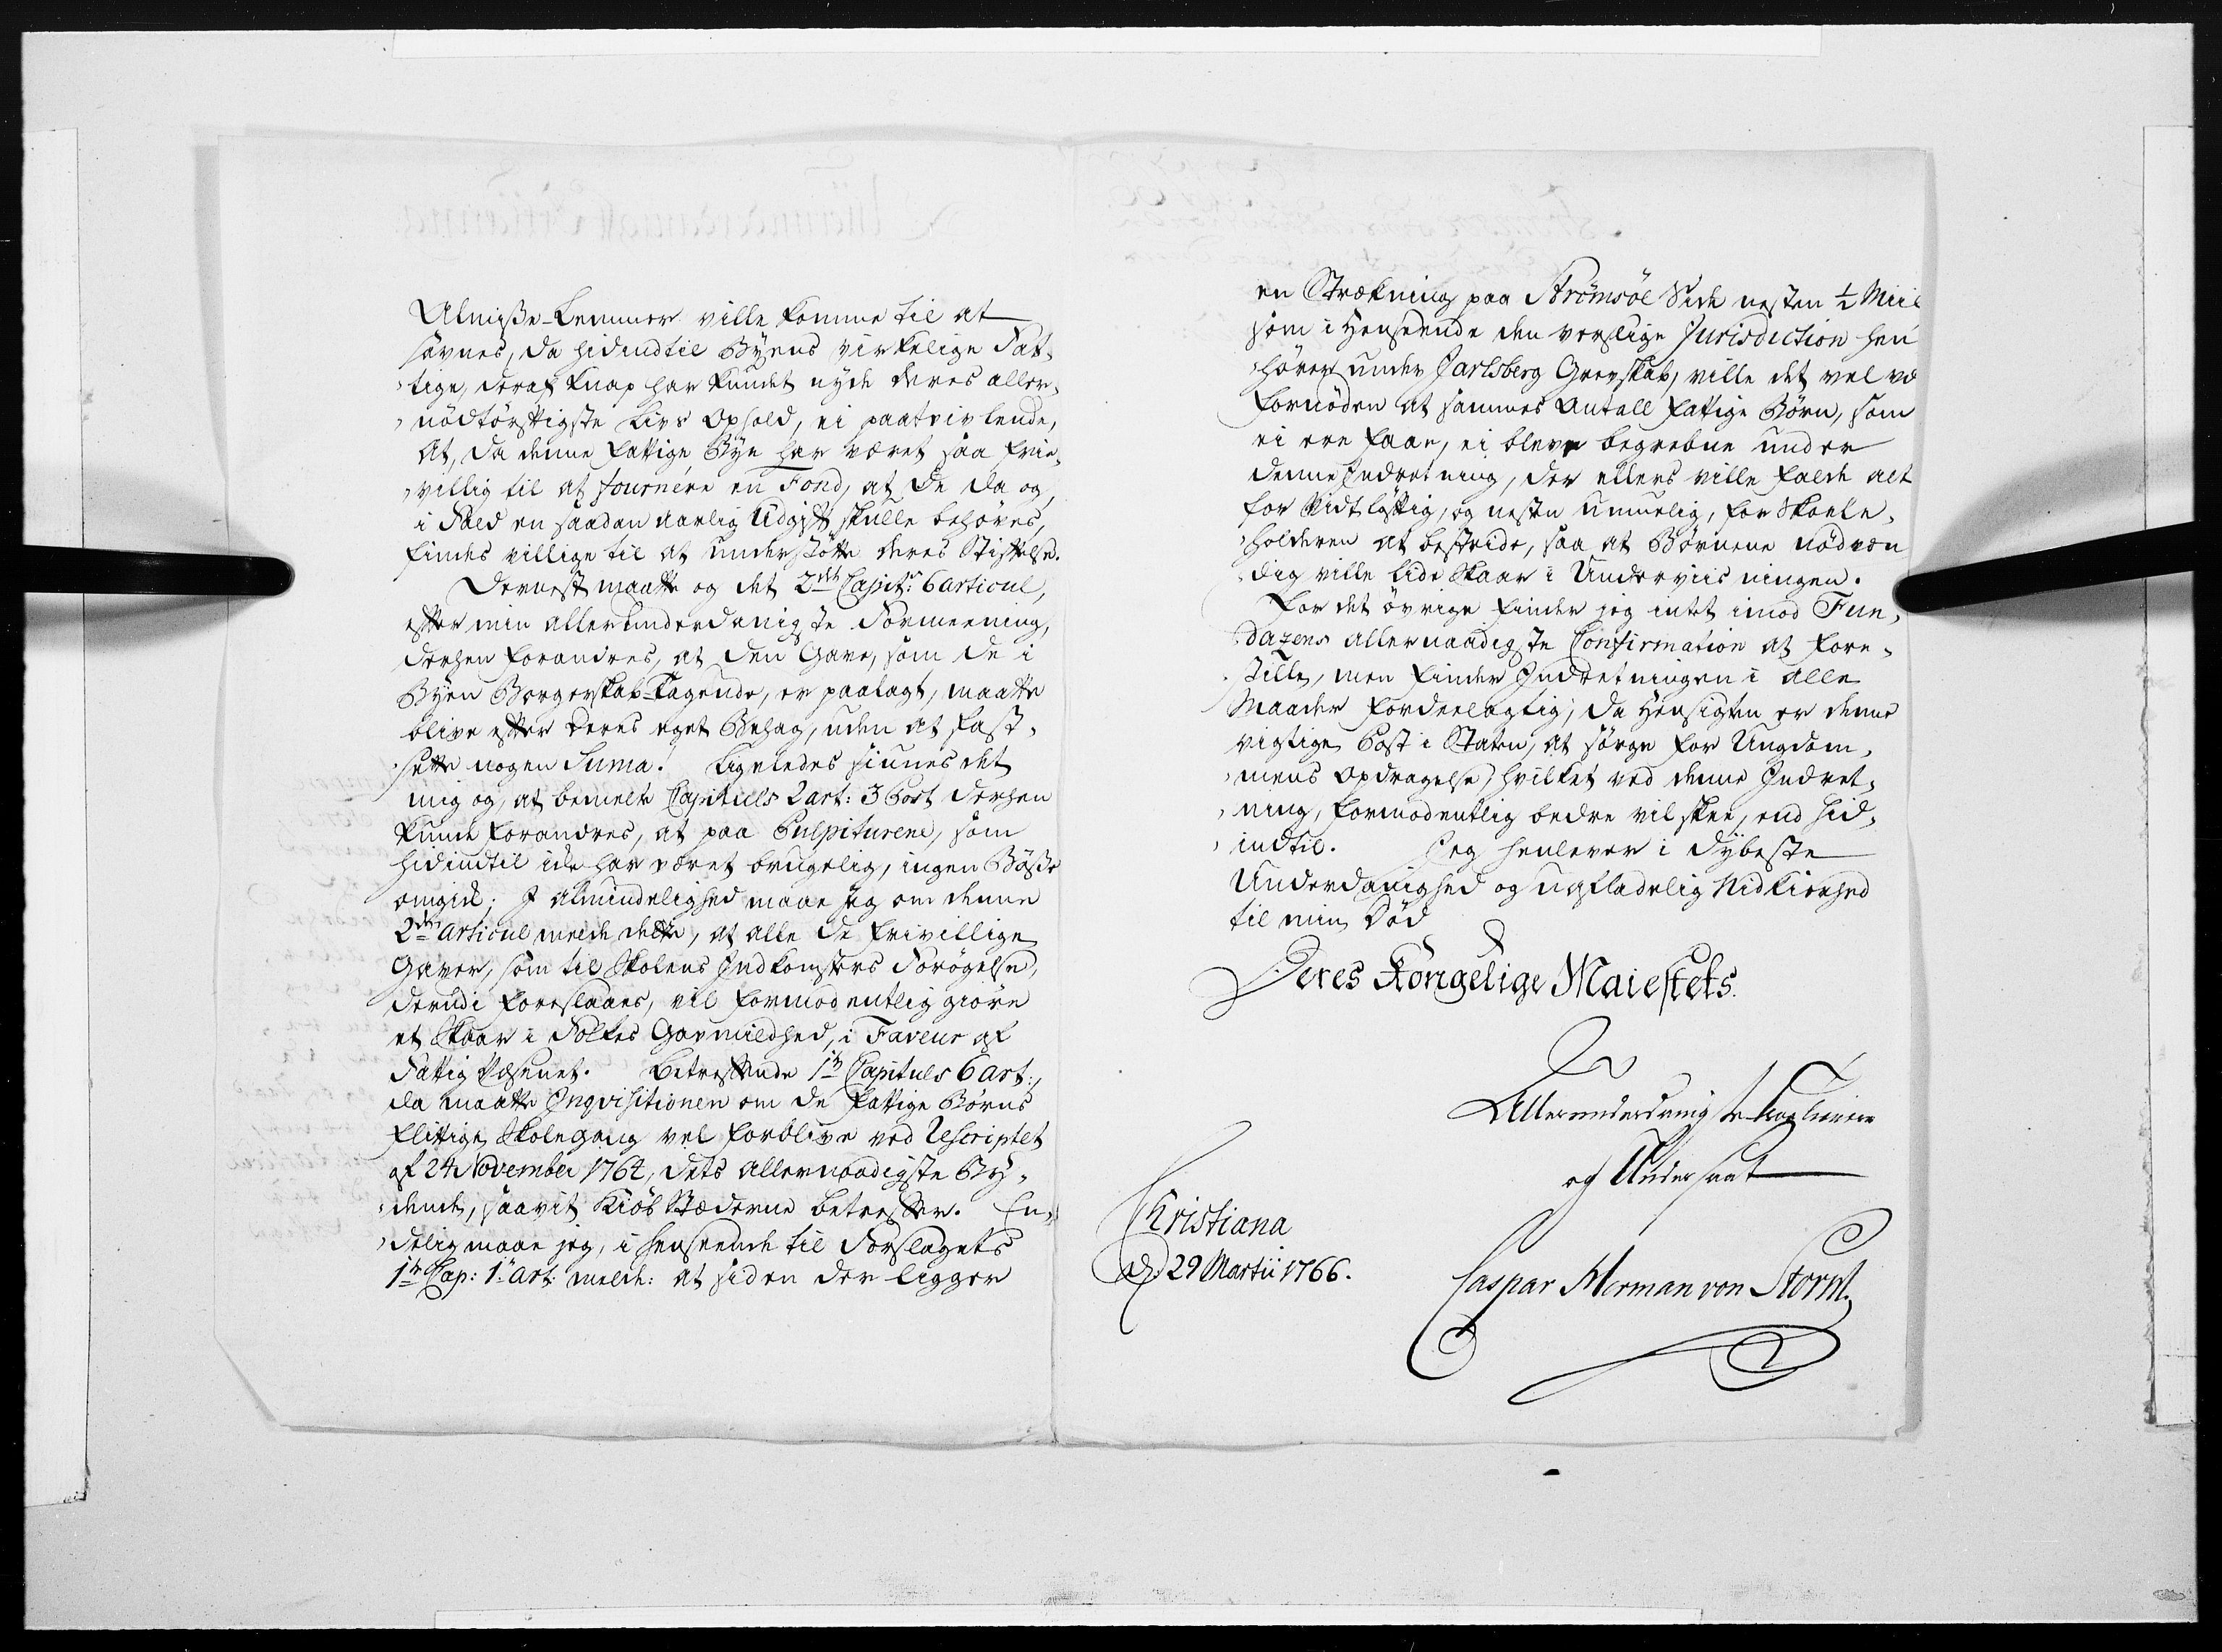 Almisse-Lemmer ville komme til at
savnes, da hidindtil Byens virkelige Fat-
tige, deraf knap har kundet nyde deres aller-
nödtörftigste Livs Ophold, ei paatvivlende,
at, da denne fattige Bye har været saa frie-
villig til at fournere en Fond, at de da og,
i Fald en saadan aarlig Udgift skulle behöves,
findes villige til at understötte deres Stiftelse.
Dernest maatte og det 2det Capit: 6 articul,
efter min allerunderdanigste Formeening,
derhen forandres, at den Gave, som de i
Byen Borgerskab-Tagende, er paalagt, maatte
blive efter deres eget Behag, uden at fast-
sette nogen Suma. Ligeledes siunes det
mig og, at bemelte Capituls 2 art: 3 Post derhen
kunde forandres, at paa Pulpiturene, som
hidindtil icke har været brugelig, ingen Bösse
omgik; I Almindelighed maae jeg om denne
2den Articul melde dette, at alle de frivillige
Gaver, som til Skolens Indkomsters Forögelse,
derudi foreslaaes, vil formodentlig giöre
et Skaar i Folkes Gavmildhed, i Faveur af
Fattig Væsenet. Betreffende 1te Capituls 6 art:,
da maatte Inqvisitionen om de fattige Börns
flittige Skolegang vel forblive ved Rescriptet
af 24 November 1764, dets allernaadigste By-
dende, saavit Kiöb Stæderne betreffer. En-
delig maae jeg, i henseende til Forslagets
1te Cap: 1 Art: melde: at siden der ligger
en Strækning paa Strömsöe Side nesten ½ Miil
som i Henseende den verslige Jurisdiction hen
hörer under Jarlsberg Grevskab, ville det vel være
fornöden at sammes Antall fattige Börn, som
ei ere faae, ei bleve begrebne under
denne Indretning, der ellers ville falde alt
for vidtlöftig, og nesten umuelig, for Skole-
holderen at bestride, saa at Börnene nödven
dig ville lide Skaar i Underviisningen.
For det övrige finder jeg intet imod Fun-
dazens allernaadigste Confirmation at fore-
stille, men finder Indretningen i alle
Maader fordeelagtig, da Hensigten er denne
vigtige Post i Staten, at sörge for Ungdom-
mens Opdragelse, hvilket ved denne Indret-
ning, formodentlig bedre vil skee, end hid-
indtil. Jeg henlever i dybeste
Underdanighed og uafladelig Nidkierhed
til min Död
Deres Kongelige Maiestets.
Allerunderdanigste troe Tienere
og Undersaat
Christiana
d. 29 Martii 1766.
Caspar Herman von Storm.